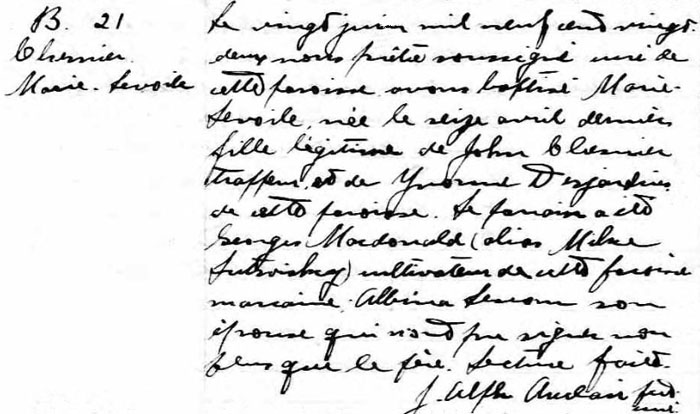 B. 21
Chernier
Marie-Levoile
Le vingt juin mil neuf cent vingt-
deux nous prêtre soussigné curé de
cette paroisse avons baptisé Marie-
Levoile, née le seize avril dernier
fille légitime de John Chernier
trappeur et de Yvonne Desjardins
de cette paroisse. Le parrain a été
Georges Macdonald (alias Mike
) cultivateur de cette paroisse
marraine Albina son
épouse qui n'ont pu signer non
plus que le père. Lecture faite.
J. Alph. Auclair ptre
curé